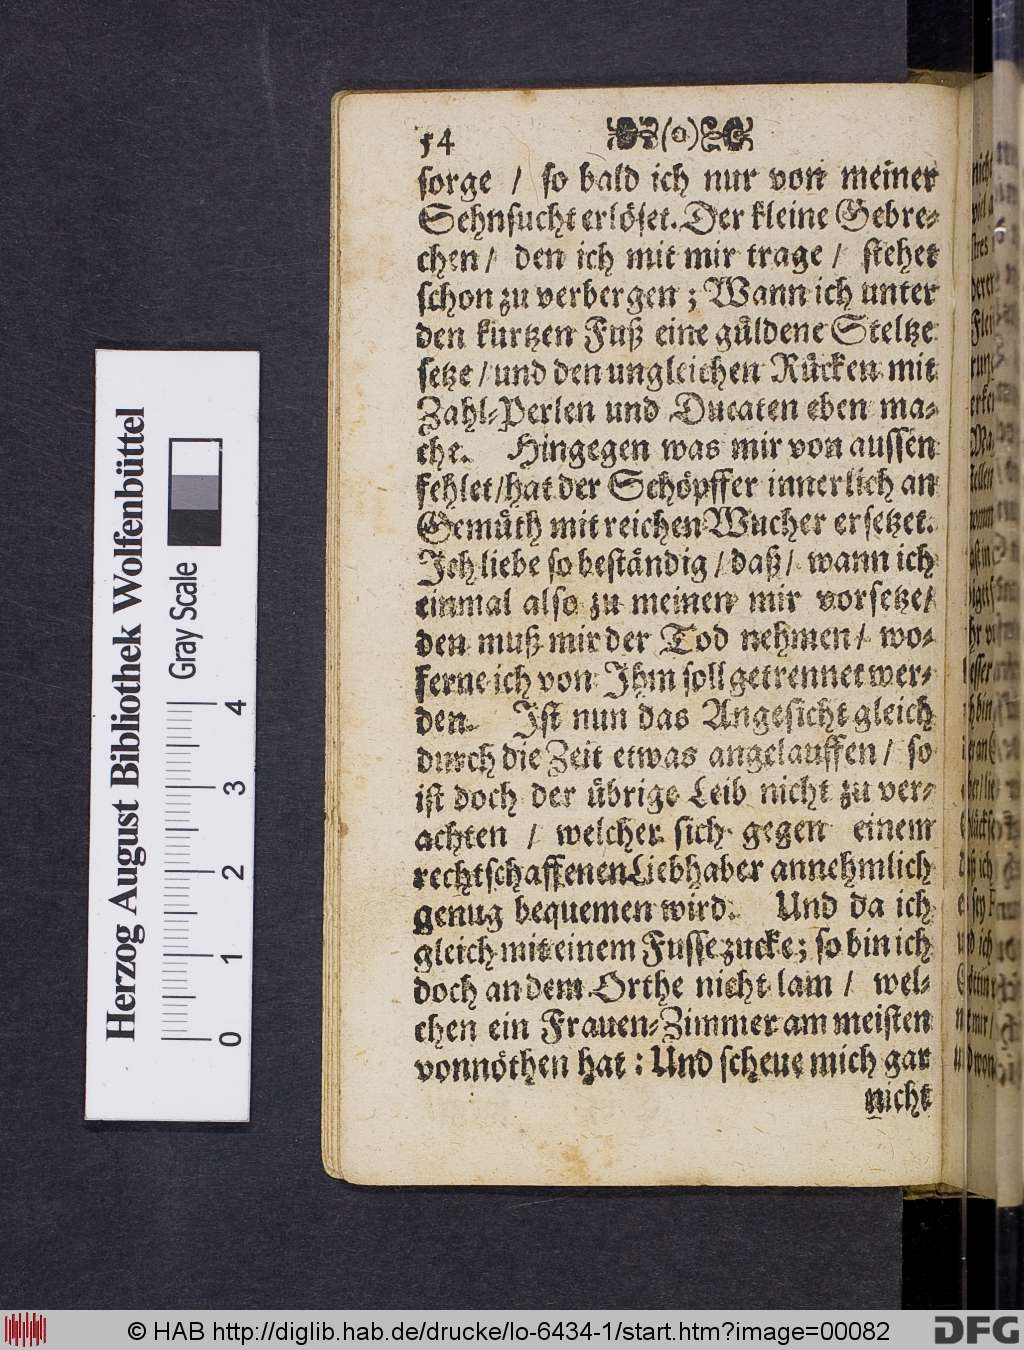 54 (o)
sorge / so bald ich nur von meiner
Sehnsucht erlöset. Der kleine Gebre-
chen / den ich mit mir trage / stehet
schon zu verbergen ; Wann ich unter
den kurtzen Fuß eine güldene Steltze
setze / und den ungleichen Rücken mit
Zahl-Perlen und Ducaten eben ma-
che. Hingegen was mir von aussen
fehlet / hat der Schöpffer innerlich an
Gemüth mit reichen Wucher ersetzet.
Ich liebe so beständig / daß / wann ich
einmal also zu meinen mir vorsetze /
den muß mir der Tod nehmen / wo-
ferne ich von Ihm soll getrennet wer-
den. Ist nun das Angesicht gleich
durch die Zeit etwas angelauffen / so
ist doch der übrige Leib nicht zu ver-
achten / welcher sich gegen einem
rechtschaffenen Liebhaber annehmlich
genug bequemen wird. Und da ich
gleich mit einem Fusse zucke ; so bin ich
doch an dem Orthe nicht lam / wel-
chen ein Frauen-Zimmer am meisten
vonnöthen hat : Und scheue mich gar
nicht
Herzog August Bibliothek Wolfenbüttel
Gray Scale
0 1 2 3 4
© HAB http://diglib.hab.de/drucke/lo-6434-1/start.htm?image=00082
DFG